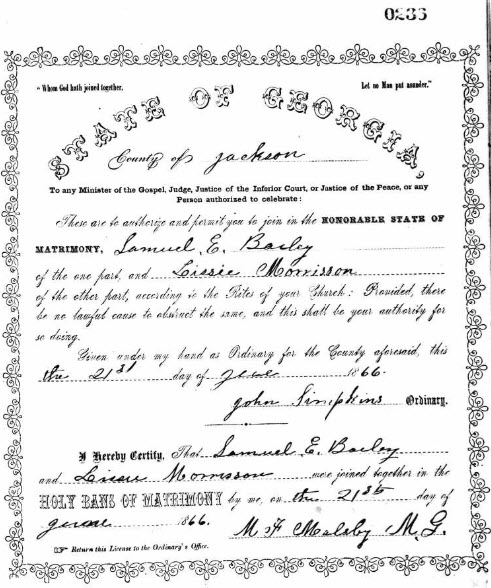 0236
"Whom God hath joined together, Let no Man put asunder."
STATE OF GEORGIA,
County of Jackson
To any Minister of the Gospel, Judge, Justice of the Inferior Court, or Justice of the Peace, or any
Person authorized to celebrate:
These are to authorize and permit you to join in the HONORABLE STATE OF
MATRIMONY, Samuel E. Baily
of the one part, and Lissie Morrisson
of the other part, according to the Rites of your Church: Provided, there
be no lawful cause to obstruct the same, and this shall be your authority for
so doing.
Given under my hand as Ordinary for the County aforesaid, this
the 21st day of June 1866.
John Simpkins Ordinary.
I Hereby Certify, That Samuel E. Baily
and Lissie Morrisson were joined together in the
HOLY BANS OF MATRIMONY by me, on the 21st day of
June 1866. M H Malsby M.G.
☞ Return this License to the Ordinary's Office.